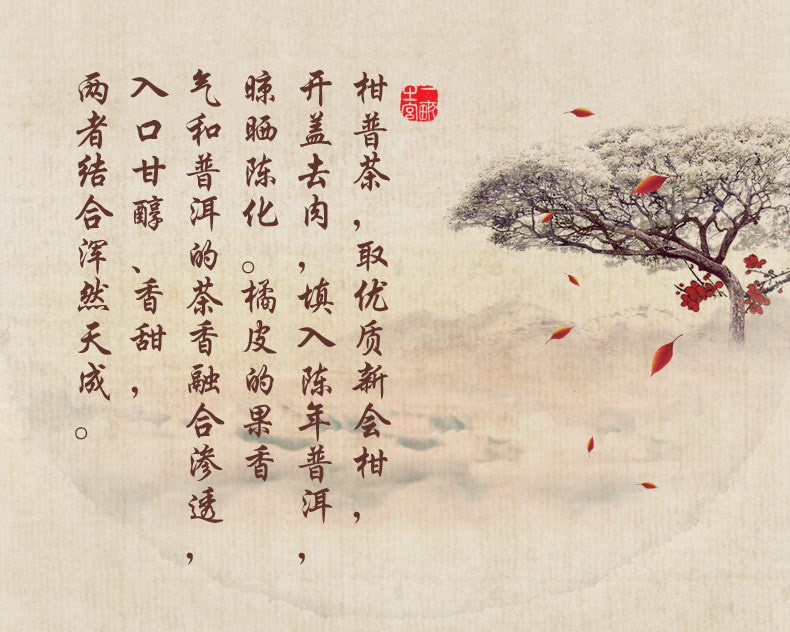 柑普茶，取优质新会柑，
开盖去肉，填入陈年普洱，
晾晒陈化。橘皮的果香
气和普洱的茶香融合渗透，
入口甘醇、香甜，
两者结合浑然天成。